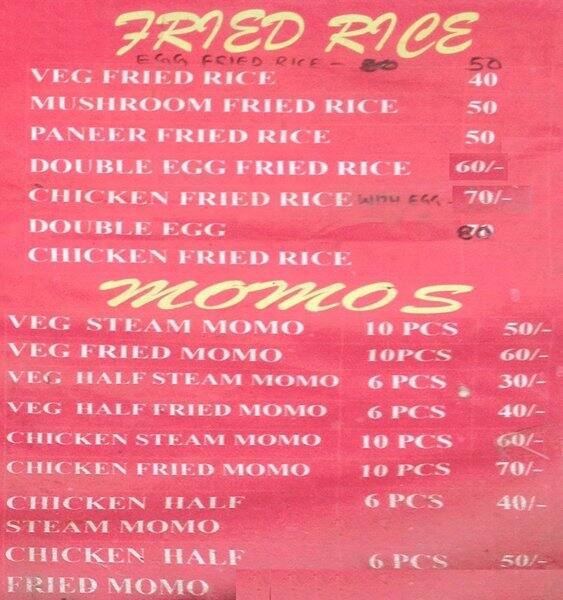 FRIED RICE
EGG FRIED RICE - 50
VEG FRIED RICE 40
MUSHROOM FRIED RICE 50
PANEER FRIED RICE 50
DOUBLE EGG FRIED RICE 60/-
CHICKEN FRIED RICE WITH EGG - 70/-
DOUBLE EGG 80
CHICKEN FRIED RICE
MOMOS
VEG STEAM MOMO 10 PCS 50/-
VEG FRIED MOMO 10PCS 60/-
VEG HALF STEAM MOMO 6 PCS 30/-
VEG HALF FRIED MOMO 6 PCS 40/-
CHICKEN STEAM MOMO 10 PCS 60/-
CHICKEN FRIED MOMO 10 PCS 70/-
CHICKEN HALF 6 PCS 40/-
STEAM MOMO
CHICKEN HALF 6 PCS 50/-
FRIED MOMO